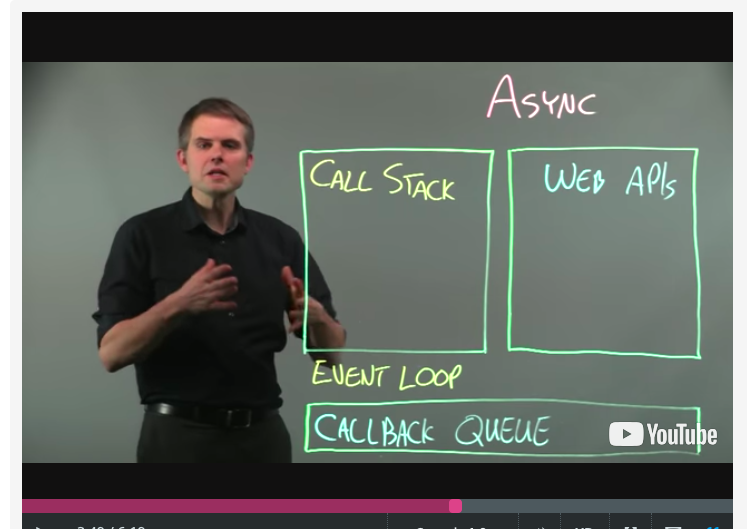 ASYNC
CALL STACK
WEB APIs
EVENT LOOP
CALLBACK QUEUE
YouTube